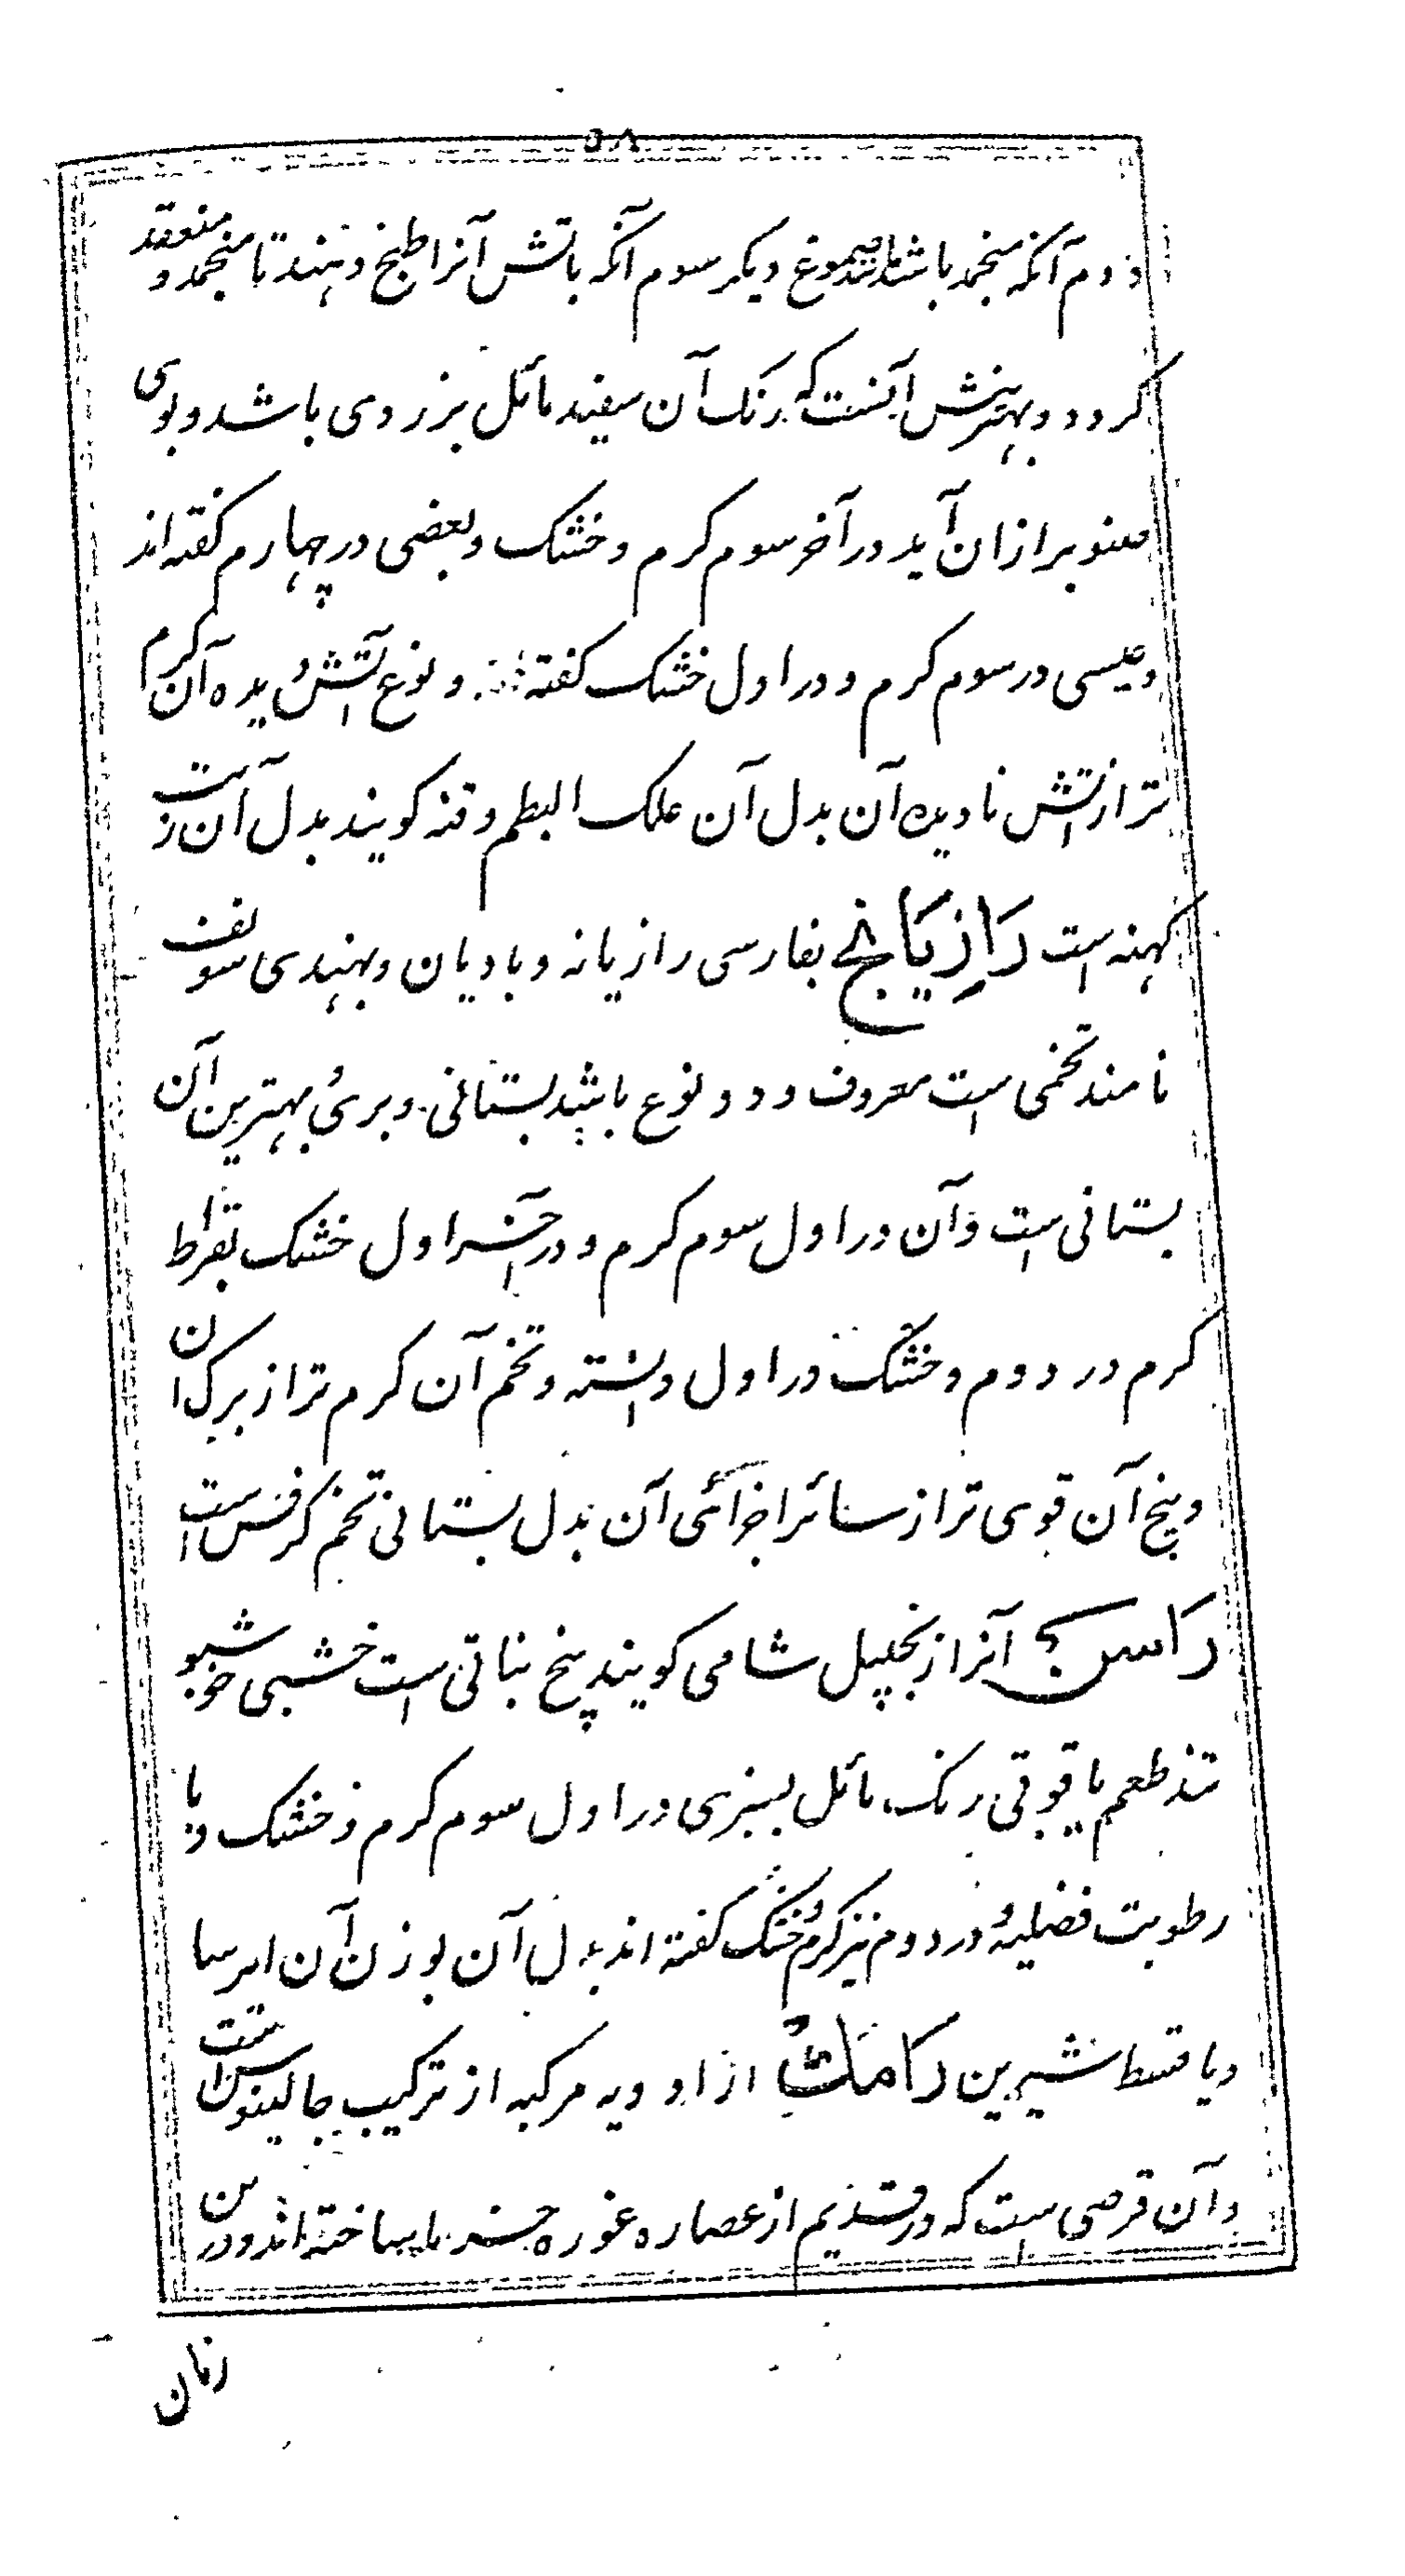 دوم آنکه منجمد باشد مانند صموغ دیکر سوم آنکه باتش آنرا طبخ دهند تا منجمد و منعقد
کردد و بهترینش آنست که رنک آن سفید مائل بزردی باشد و بوی
صنوبر ازان آید در آخر سوم کرم و خشک و بعضی در چهارم کفته اند
و عیسی در سوم کرم و در اول خشک کفته و نوع آتش دیده آن کرم
تر از آتش نادیده آن بدل آن علک البطم و قنه کویند بدل آن زیت
کهنه است رازیانج بفارسی رازیانه و بادیان و بهندی سونف
نامند تخمی است معروف و دو نوع باشد بستانی و بری بهترین آن
بستانی است و آن در اول سوم کرم و در آخر اول خشک بقراط
کرم در دوم و خشک در اول دانسته و تخم آن کرم تر از برک ان
و بیخ آن قوی تر از سائر اجزائی آن بدل بستانی تخم کرفس است
راسن آنرا زنجبیل شامی کویند بیخ نباتی است خشبی خوشبو
تند طعم یاقوتی رنک مائل بسبزی در اول سوم کرم و خشک و با
رطوبت فضلیه و در دوم نیز کرم و خشک کفته اند بدل آن بوزن آن ایرسا
و یا قسط شیرین رامک از ادویه مرکبه از ترکیب جالینوس است
و آن قرصی است که در قدیم از عصاره غوره خرما میساختهاند و درین
زمان